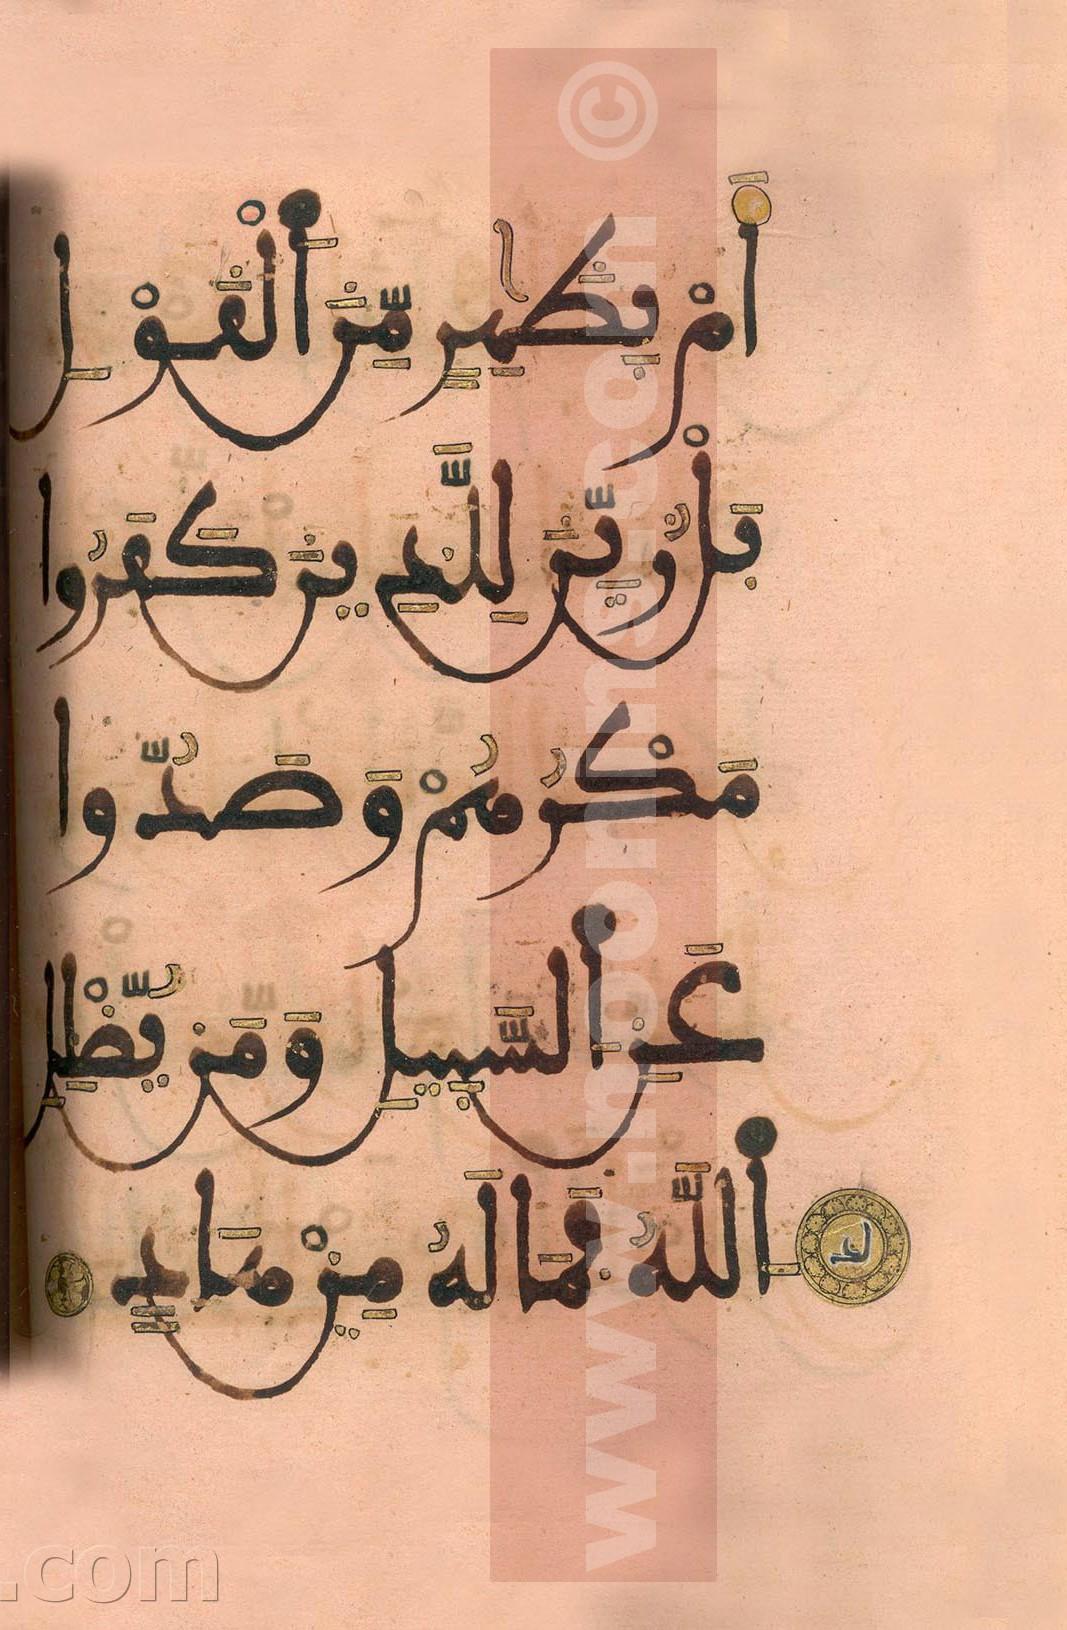 أَمْ بِظَٰهِرٍ مِّنَ ٱلْقَوْلِ
بَلْ زُيِّنَ لِلَّذِينَ كَفَرُوا
مَكْرُهُمْ وَصَدُّوا
عَنِ ٱلسَّبِيلِ وَمَن يُّضْلِلِ
ٱللَّهُ فَمَا لَهُ مِنْ هَادٍ
©
.com